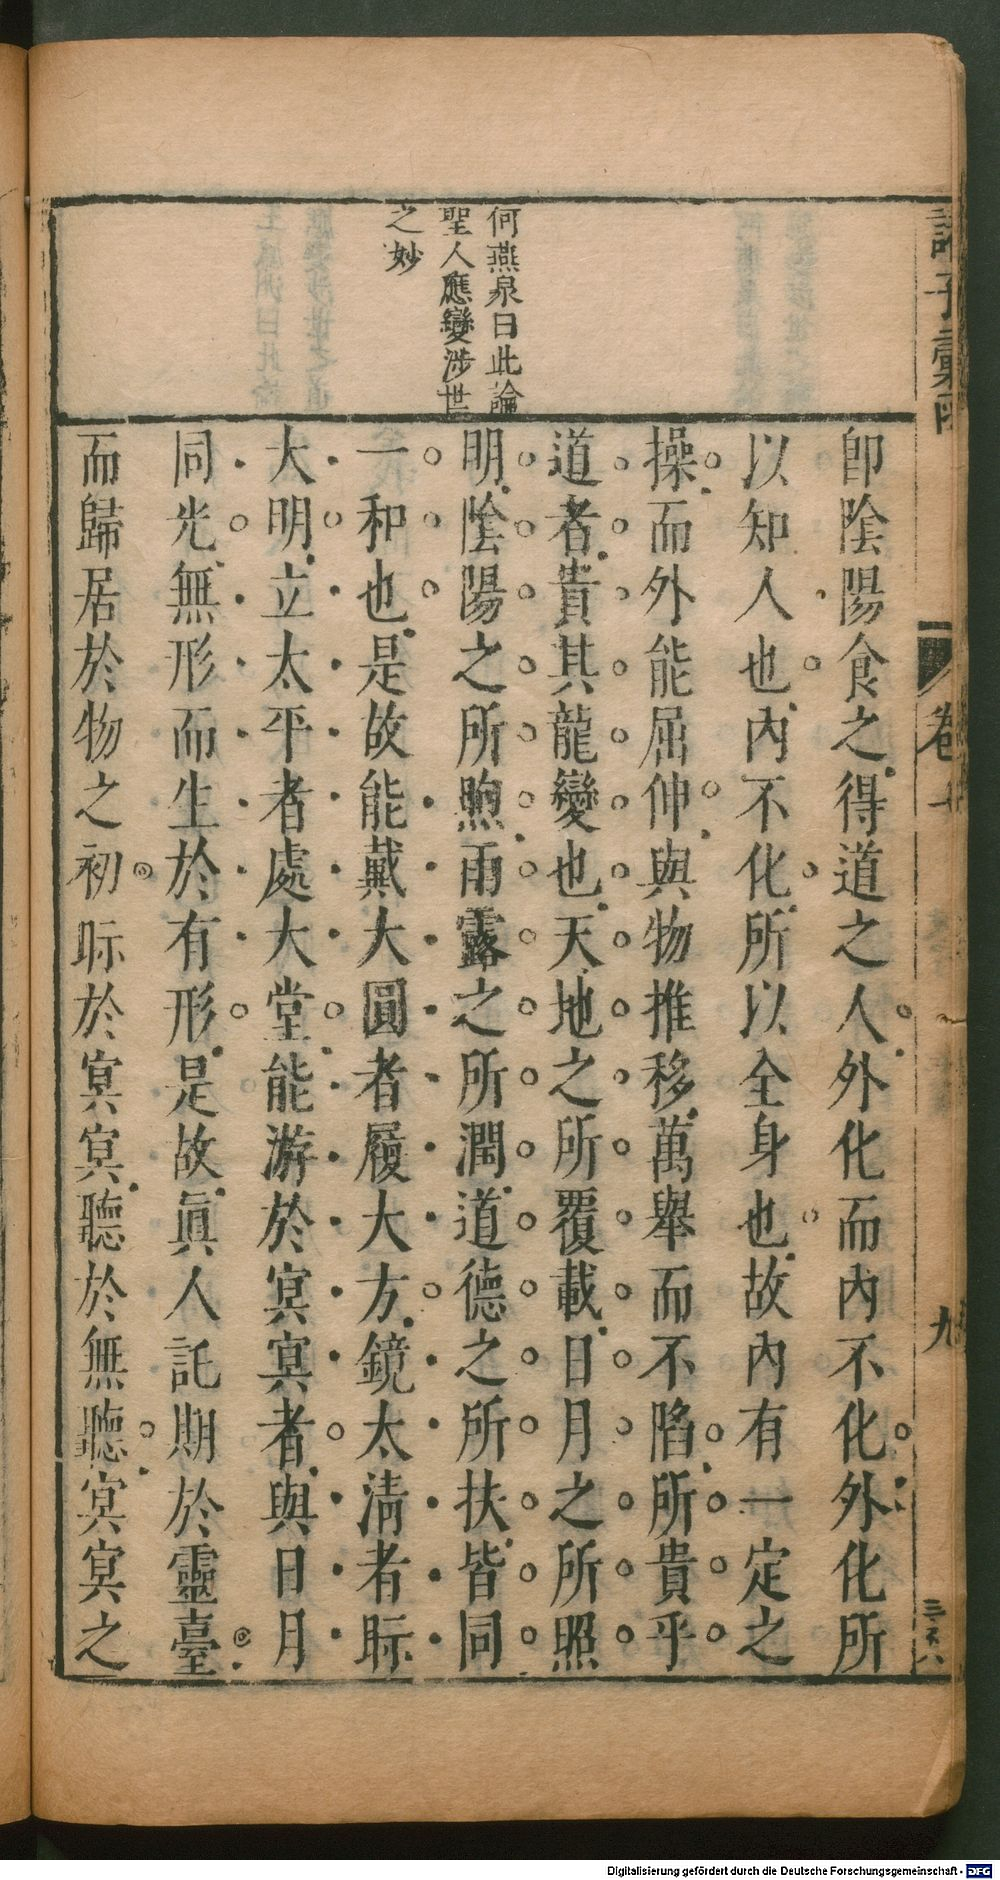 何燕泉曰此論
聖人應變涉世
之妙
卽陰陽食之得道之人外化而內不化外化所
以知人也內不化所以全身也故內有一定之
操而外能屈伸與物推移萬舉而不陷所貴乎
道者貴其龍變也天地之所覆載日月之所照
明陰陽之所煦雨露之所潤道德之所扶皆同
一和也是故能戴大圓者履大方鏡太淸者眎
大明立太平者處大堂能游於冥冥者與日月
同光無形而生於有形是故眞人託期於靈臺
而歸居於物之初眎於冥冥聽於無聽冥冥之
卷
九
Digitalisierung gefördert durch die Deutsche Forschungsgemeinschaft - DFG